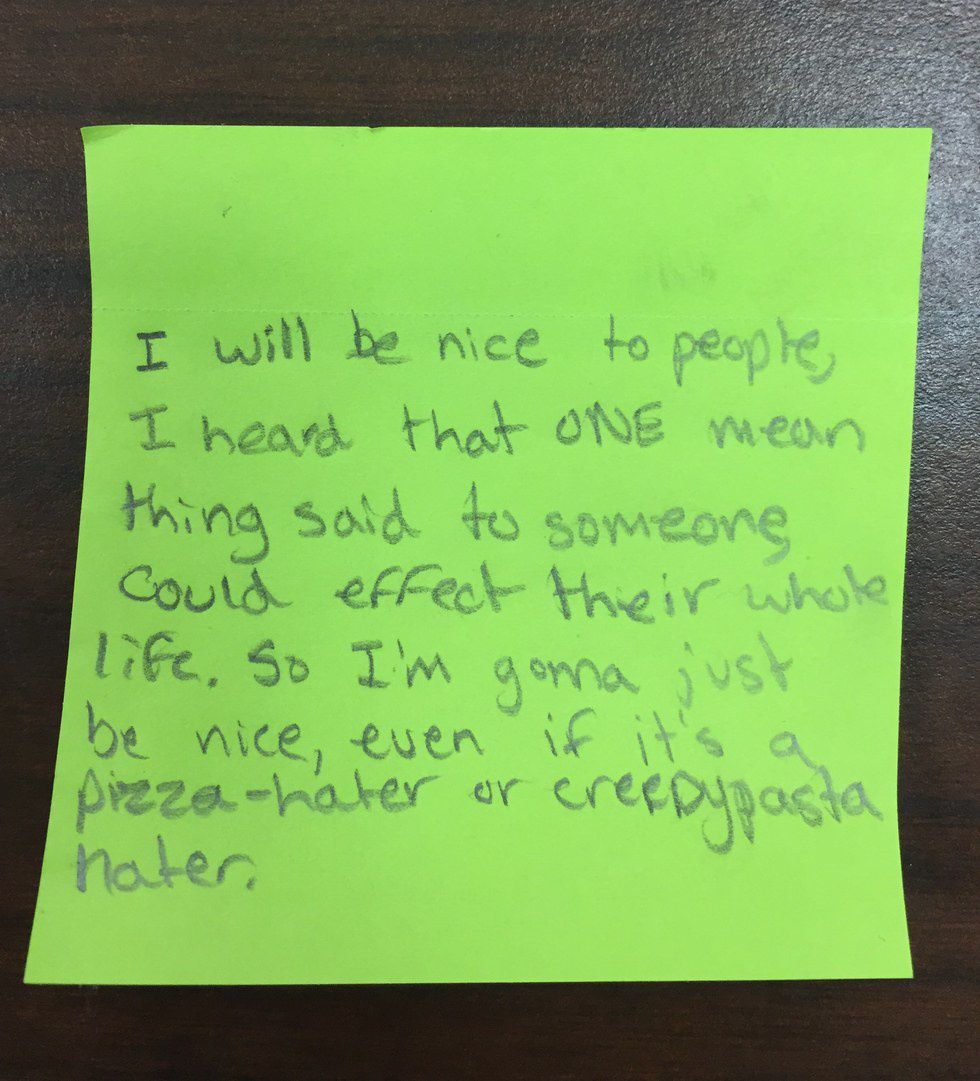 I will be nice to people,
I heard that ONE mean
thing said to someone
could effect their whole
life. So I'm gonna just
be nice, even if it's a
pizza-hater or creepypasta
hater.